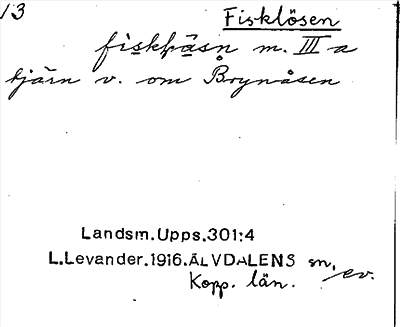 13
Fisklösen
m. III a
tjärn v. om Brynåsen
Landsm. Upps. 301:4
L. Levander. 1916. ÄLVDALENS sn.
Kopp. län. ev.